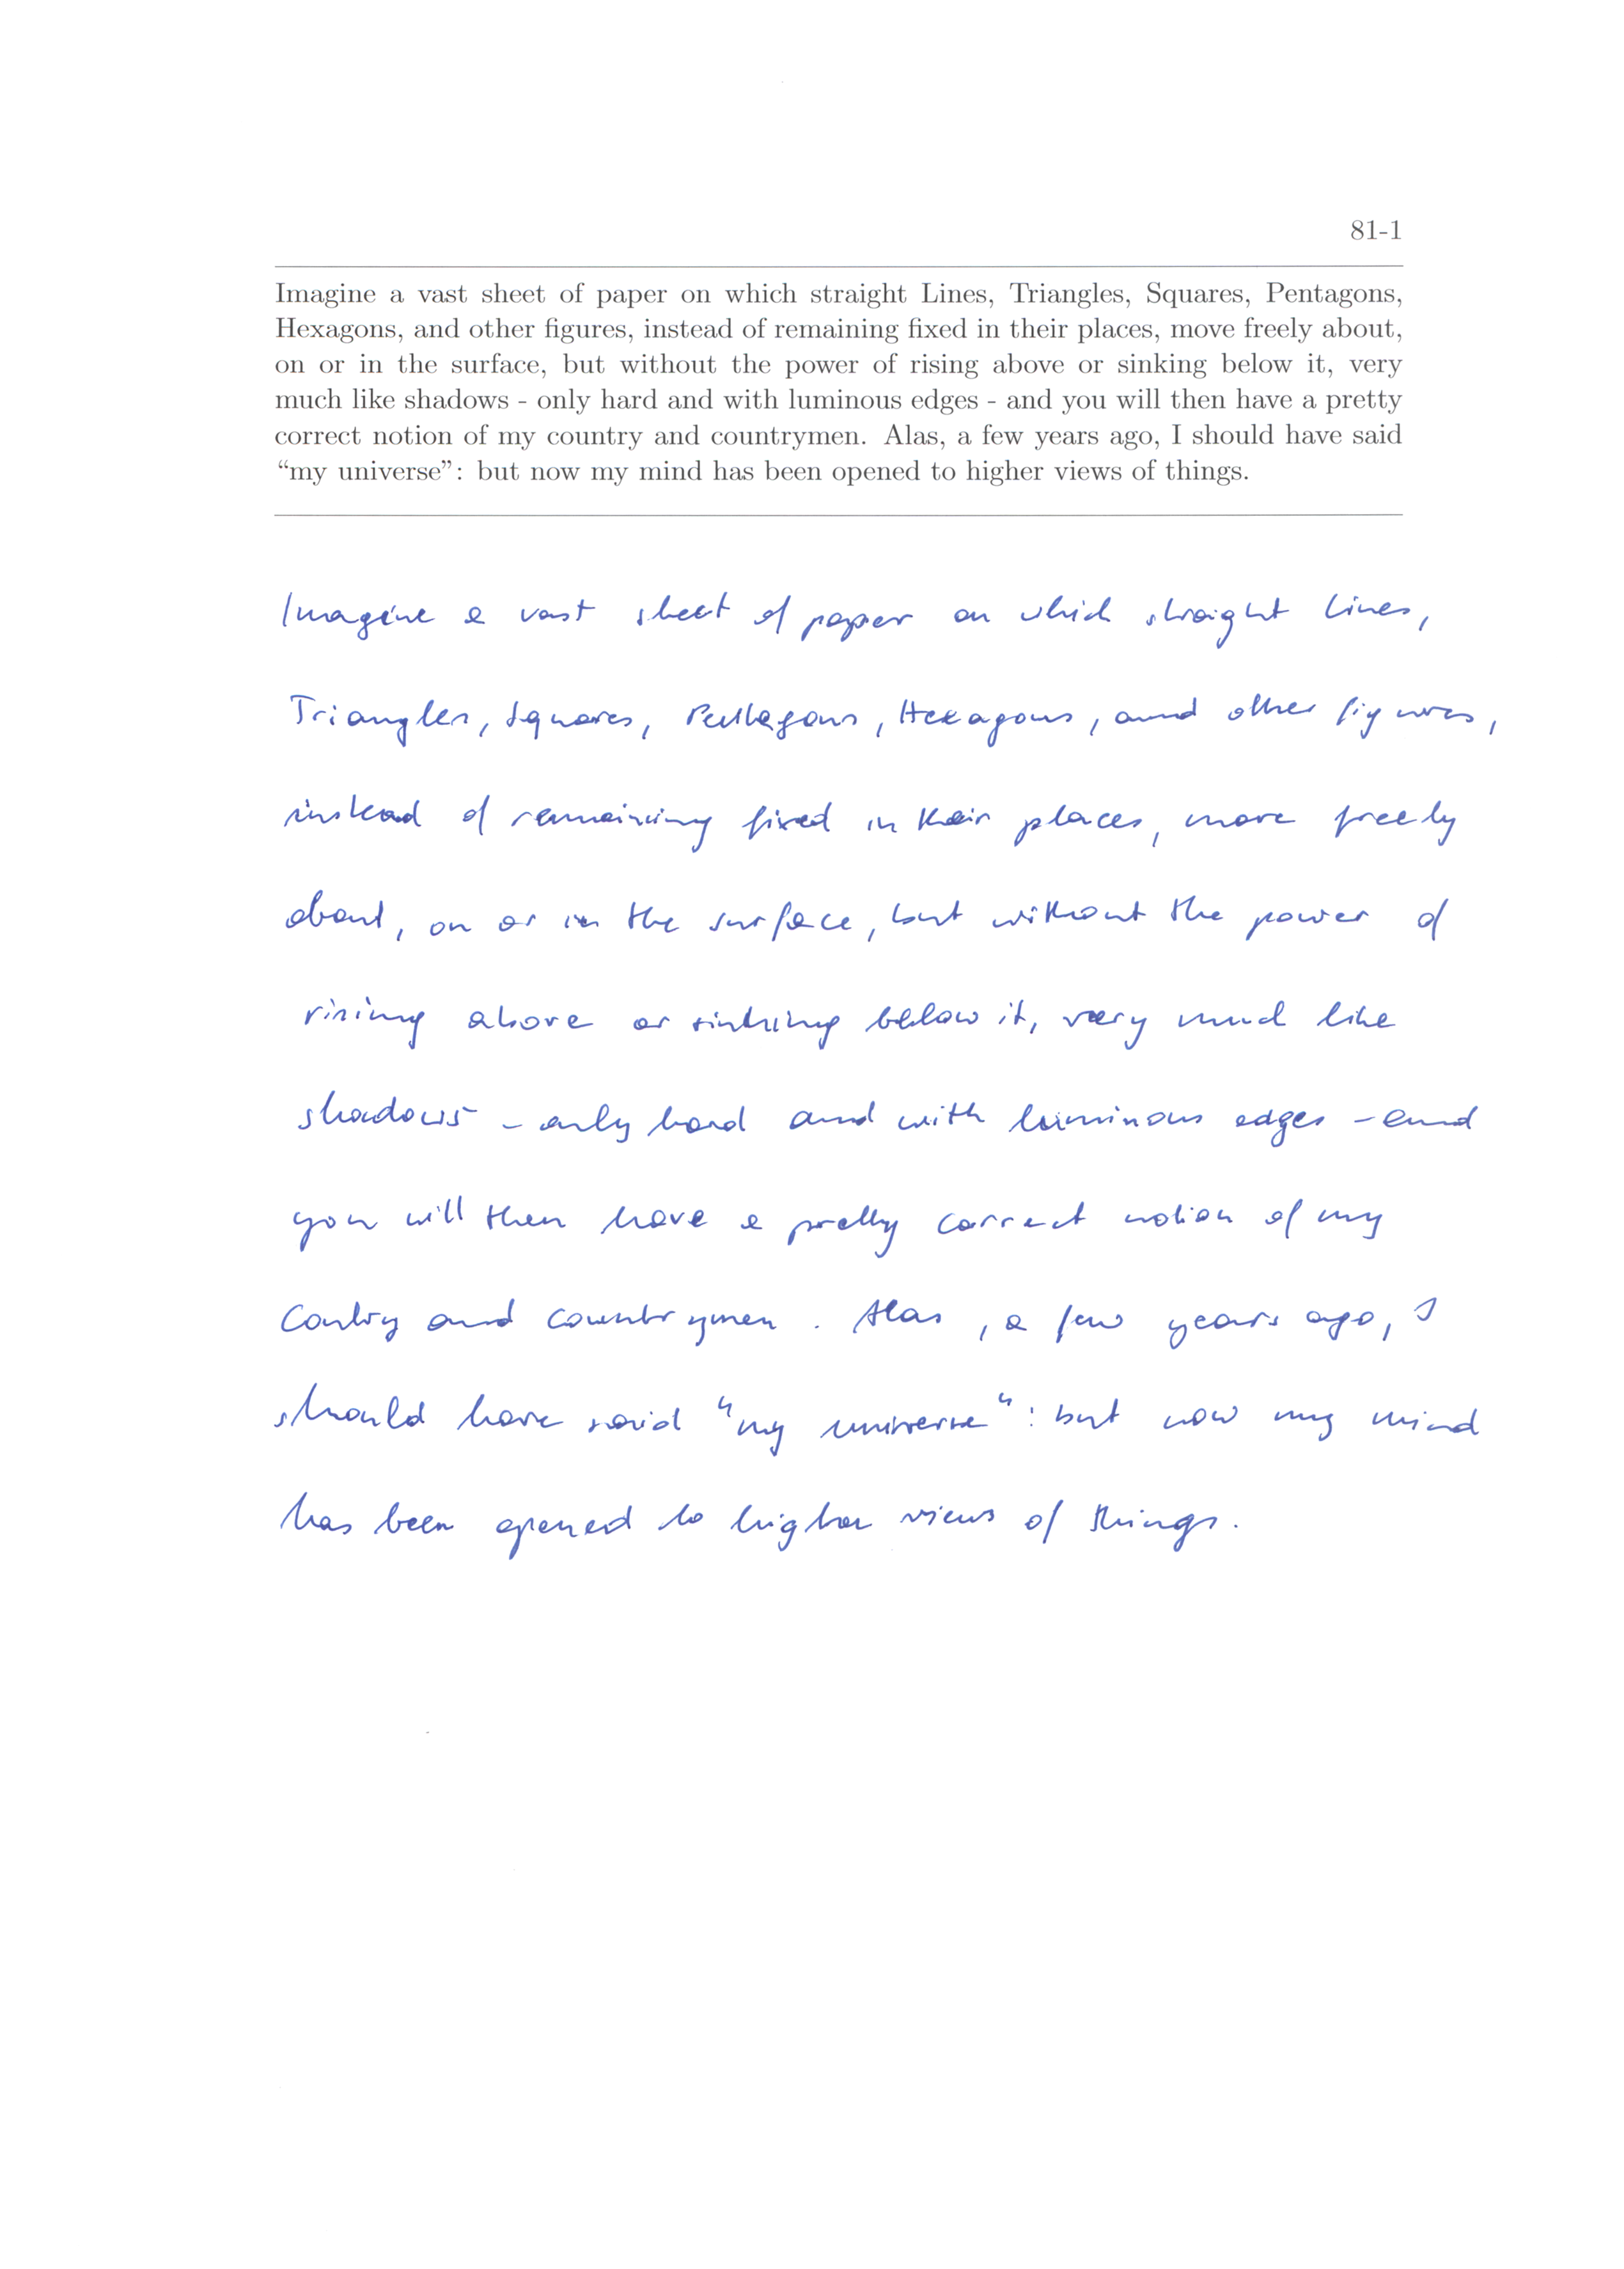 81-1
Imagine a vast sheet of paper on which straight Lines, Triangles, Squares, Pentagons,
Hexagons, and other figures, instead of remaining fixed in their places, move freely about,
on or in the surface, but without the power of rising above or sinking below it, very
much like shadows - only hard and with luminous edges - and you will then have a pretty
correct notion of my country and countrymen. Alas, a few years ago, I should have said
“my universe”: but now my mind has been opened to higher views of things.
Imagine a vast sheet of paper on which straight Lines,
Triangles, Squares, Pentagons, Hexagons, and other figures,
instead of remaining fixed in their places, move freely
about, on or in the surface, but without the power of
rising above or sinking below it, very much like
shadows - only hard and with luminous edges - and
you will then have a pretty correct notion of my
Contry and countrymen. Alas, a few years ago, I
should have said "my universe": but now my mind
has been opened to higher views of things.